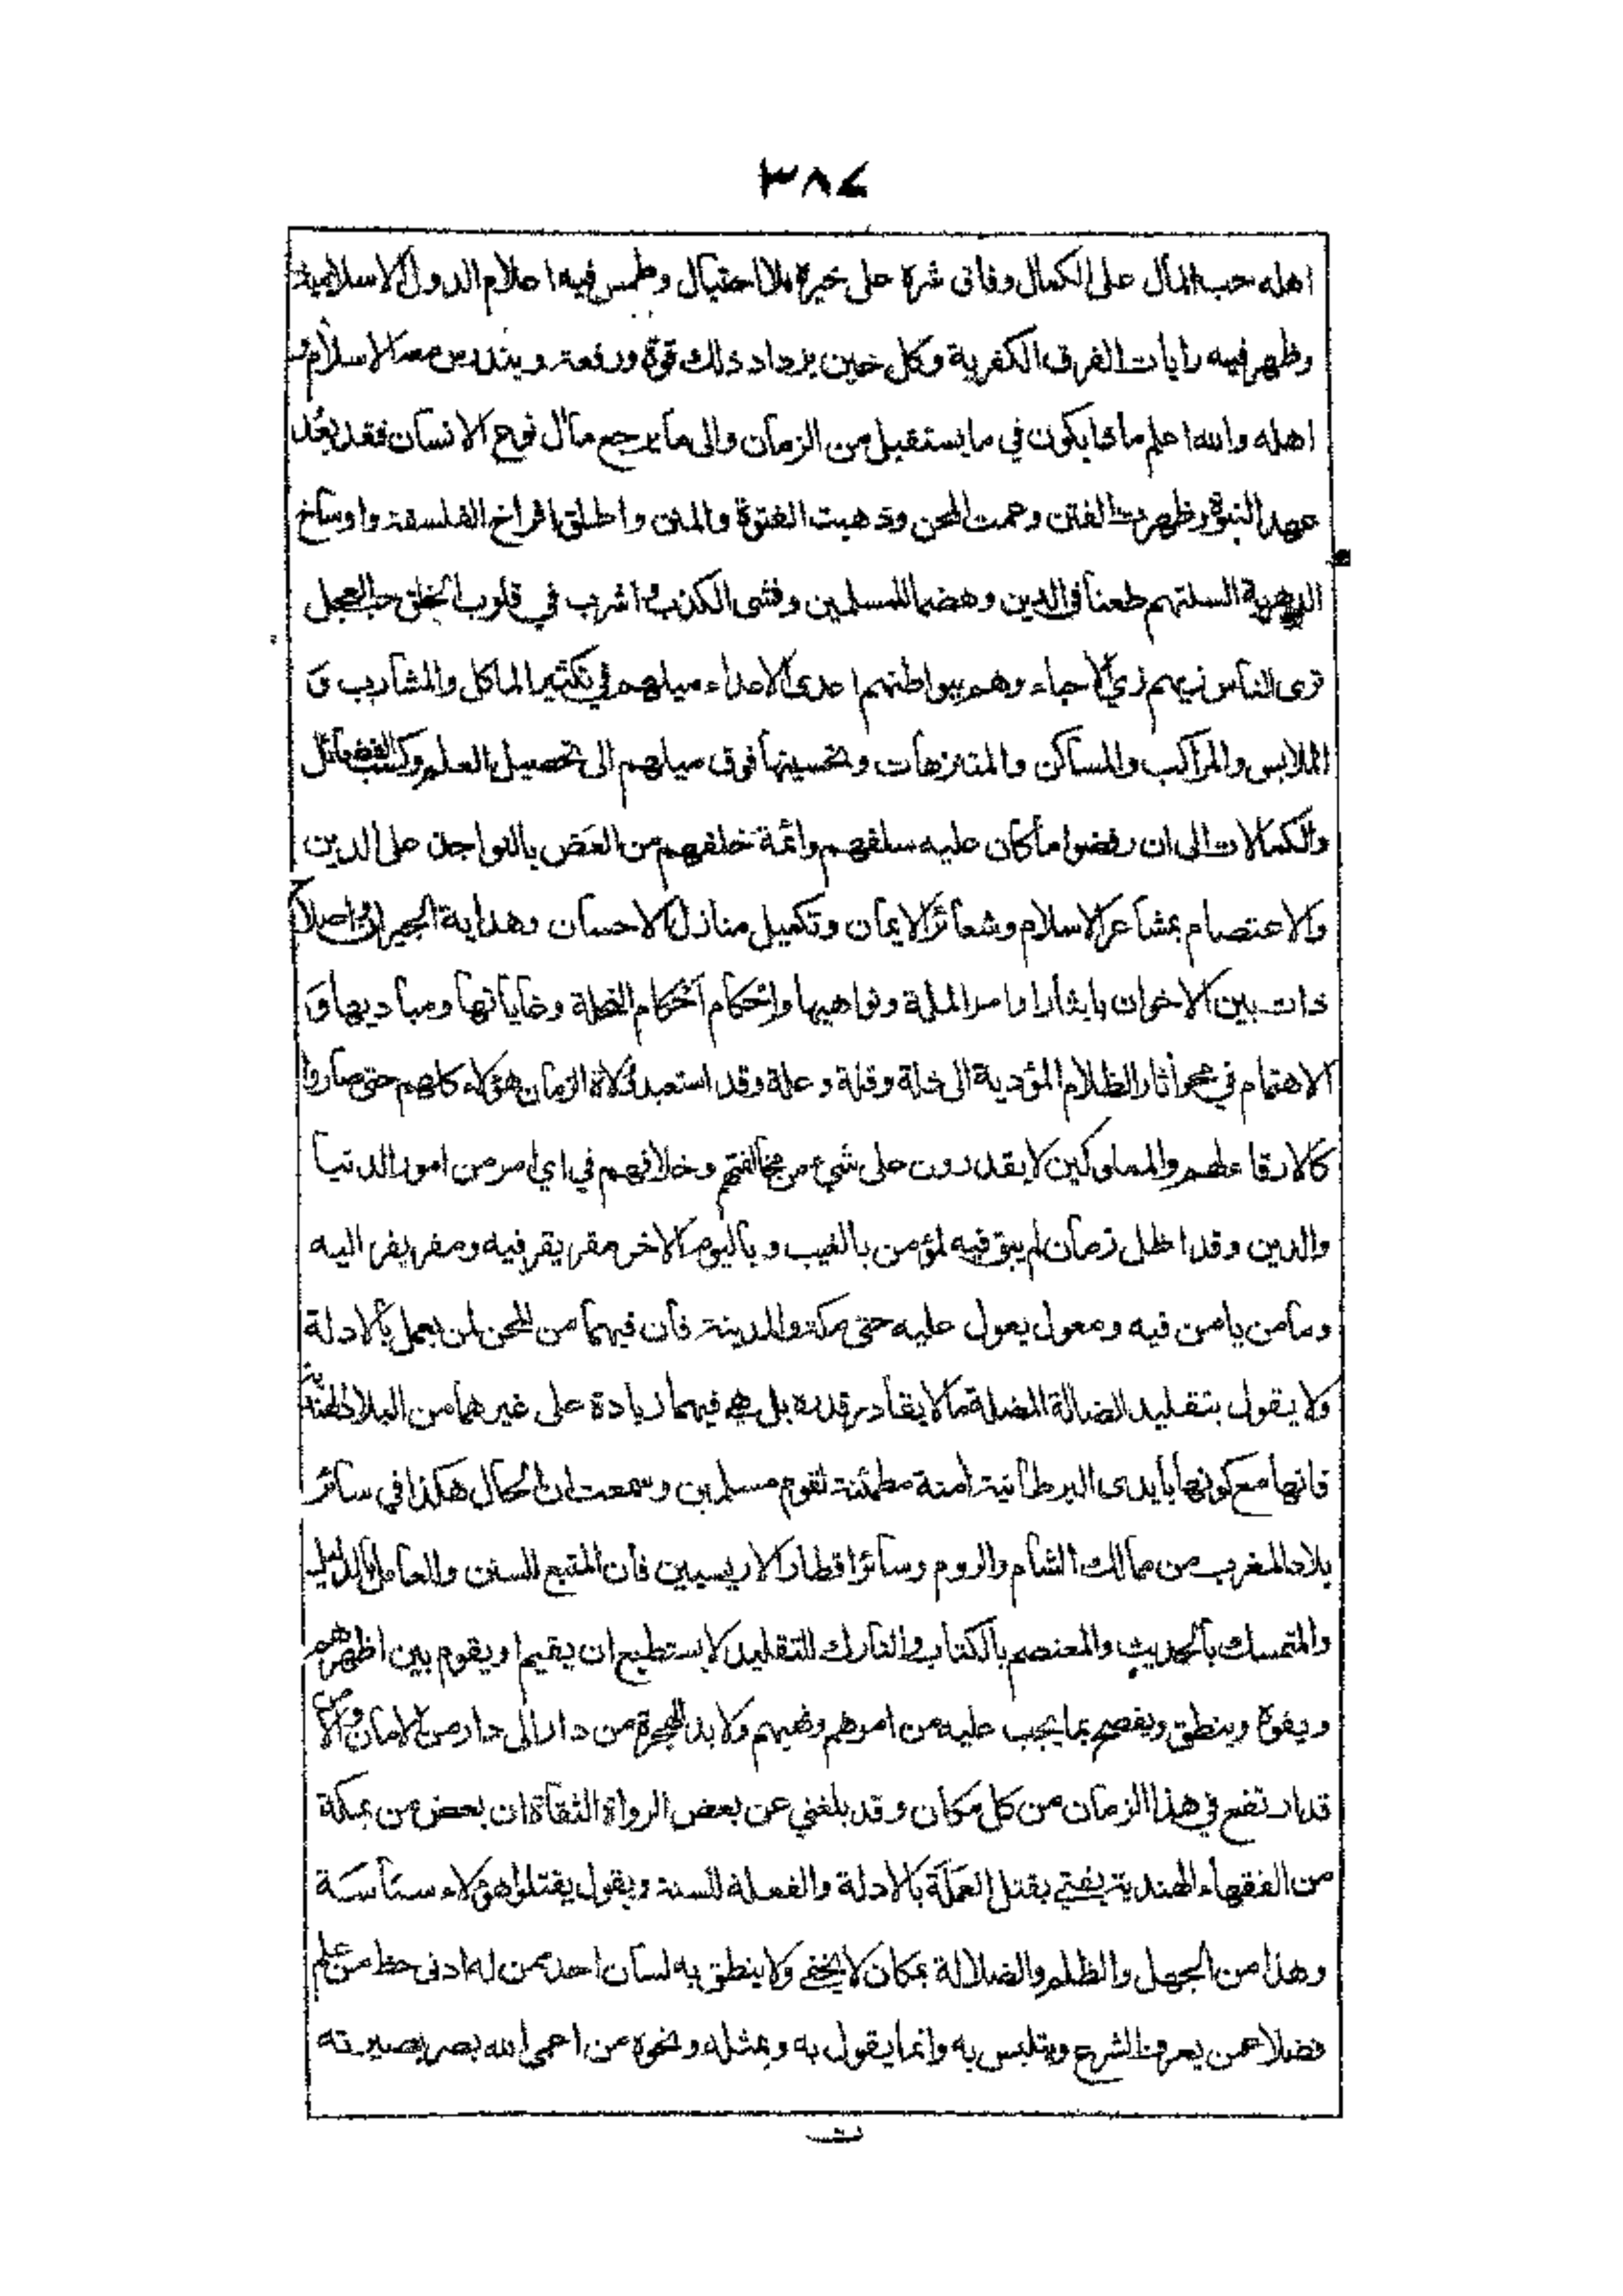 ٣٨٤
اهله حب المال على الكمال وفاق شره على خيره بلا احتيال وطمس فيه اعلام الدول الاسلامية
وظهر فيه رايات الفرق الكفرية وكل حين يزداد ذلك قوة ورفعة ويندرس معه الاسلام و
اهله والله اعلم ماذا يكون في ما يستقبل من الزمان والى ما يرجع مآل نوع الانسان فقد بعُد
عهد النبوة وظهرت الفتن وعمت المحن وذهبت الفتوة والمنن واطلق افراخ الفلسفة واوساخ
الدهرية السنتهم طعنا في الدين وهضما للمسلمين وفشى الكذب واشرب في قلوب الخلق حب العجل
ترى الناس زيهم زي الاحباء وهم ببواطنهم اعدى الاعداء ميلهم في تكثير الماكل والمشارب و
الملابس والمراكب والمساكن والمتنزهات وتحسينها فوق ميلهم الى تحصيل العلم وكسب الفضائل
والكمالات الى ان رفضوا ما كان عليه سلفهم وائمة خلفهم من العَض بالنواجذ على الدين
والاعتصام بمشاعر الاسلام وشعائر الايمان وتكميل منازل الاحسان وهداية الجيران واصلاح
ذات بين الاخوان بايثار اوامر الملة ونواهيها واحكام احكام النحلة وغاياتها ومباديها و
الاهتمام في محو اثار الظلام المؤدية الى خلة وقلة وعلة وقد استعبد ولاة الزمان هؤلاء كلهم حتى صاروا
كالارقاء لهم والمملوكين لا يقدرون على شيء من مخالفتهم وخلافهم في اي امر من امور الدنيا
والدين وقد اظل زمان لم يبق فيه لمؤمن بالغيب وباليوم الاخر مقر يقر فيه ومفر يفر اليه
ومأمن يامن فيه ومعول يعول عليه حتى مكة والمدينة فان فيهما من المحن لمن يعمل بالادلة
ولا يقول بتقليد الضالة المضلة ما لا يقادر قدره بل هي فيهما زيادة على غيرهما من البلاد الهندية
فانها مع كونها بايدى البرطانية امنة مطمئنة لقوم مسلمين وسمعت ان الحال هكذا في سائر
بلاد المغرب من ممالك الشام والروم وسائر اقطار الاريسيين فان المتبع للسنن والعامل بالدليل
والمتمسك بالحديث والمعتصم بالكتاب والتارك للتقليد لا يستطيع ان يقيم او يقوم بين اظهرهم
ويفوه وينطق ويفصح بما يجب عليه من امرهم ونهيهم ولا بد للهجرة من دار الى دار من الامان والامن
قد ارتفع في هذا الزمان من كل مكان وقد بلغني عن بعض الرواة الثقاة ان بعض من بمكة
من الفقهاء الهندية يفتي بقتل العَمَلَة بالادلة والفعلة للسنة ويقول يقتلوا هؤلاء سياسة
وهذا من الجهل والظلم والضلالة بمكان لا يخفى ولا ينطق به لسان احد ممن له ادنى حظ من علم
فضلا عمن يعرف الشرع ويتلبس به وانما يقول به وبمثله ونحوه من اعمى الله بصر بصيرته